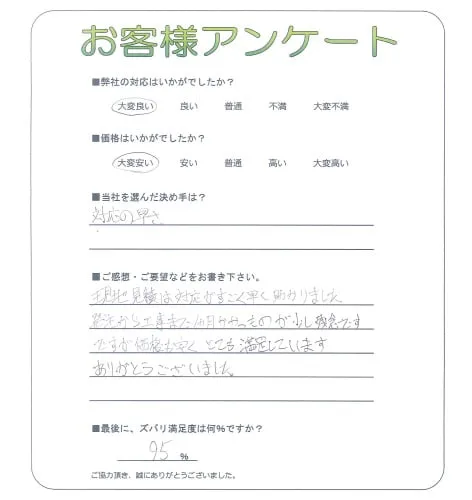 お客様アンケート
■弊社の対応はいかがでしたか？
大変良い 良い 普通 不満 大変不満
■価格はいかがでしたか？
大変安い 安い 普通 高い 大変高い
■当社を選んだ決め手は？
対応の早さ
■ご感想・ご要望などをお書き下さい。
現地見積は対応がすごく早く助かりました
発注から工事まで1ヶ月かかったものが少し残念です
ですが価格も安くとても満足しています
ありがとうございました。
■最後に、ズバリ満足度は何%ですか？
95 %
ご協力頂き、誠にありがとうございました。